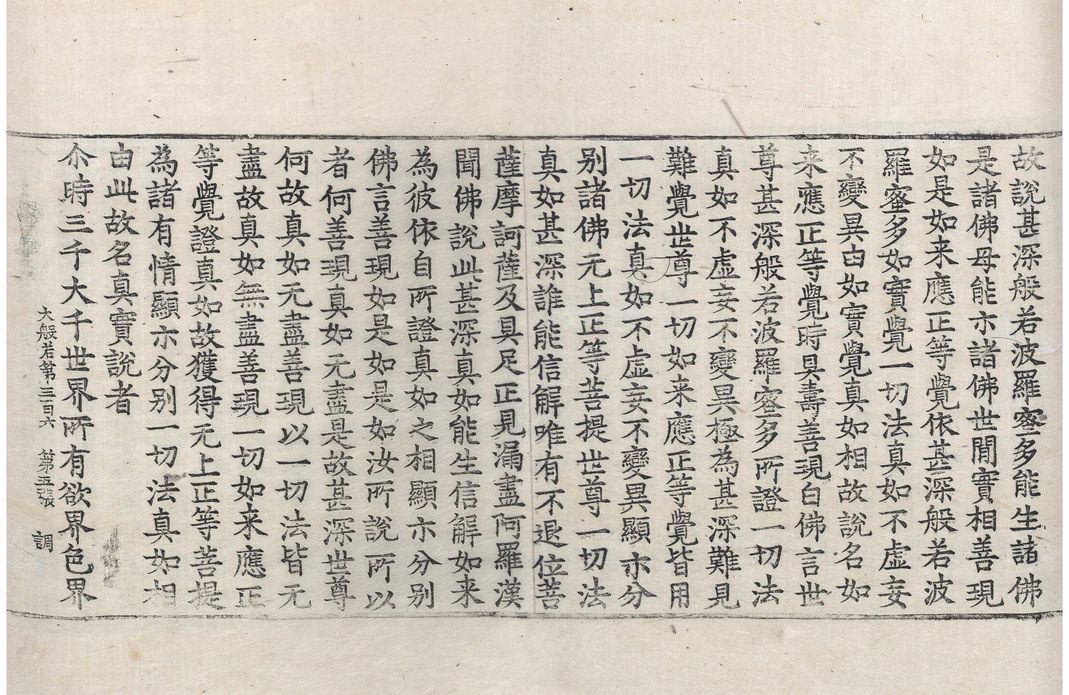 故說甚深般若波羅蜜多能生諸佛
是諸佛母能示諸佛世間實相善現
如是如来應正等覺依甚深般若波
羅蜜多如實覺一切法真如不虚妄
不變異由如實覺真如相故說名如
来應正等覺時具壽善現白佛言世
尊甚深般若波羅蜜多所證一切法
真如不虚妄不變異極為甚深難見
難覺世尊一切如来應正等覺皆用
一切法真如不虚妄不變異顯示分
别諸佛无上正等菩提世尊一切法
真如甚深誰能信解唯有不退位菩
薩摩訶薩及具足正見漏盡阿羅漢
聞佛說此甚深真如能生信解如来
為彼依自所證真如之相顯示分别
佛言善現如是如是如汝所說所以
者何善現真如无盡是故甚深世尊
何故真如无盡善現以一切法皆无
盡故真如無盡善現一切如来應正
等覺證真如故獲得无上正等菩提
為諸有情顯示分别一切法真如相
由此故名真實說者
尒時三千大千世界所有欲界色界
大般若第三百六 第五張 調